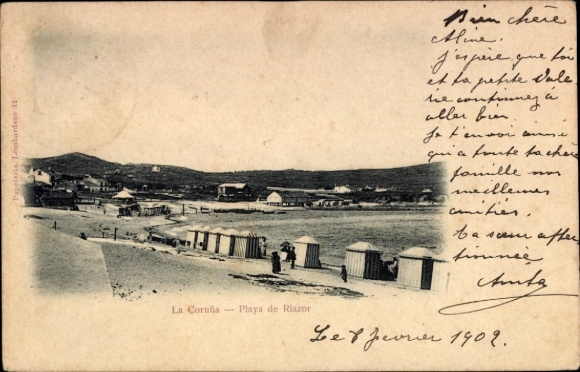 Bien chère
Aline.
J'espère que toi
et ta petite Valé
rie continuez à
aller bien.
Je t'envoi ainsi
qu'a toute ta chère
famille nos
meilleures
amitiés.
Ta sœur affec
tionnée
Anita
La Coruña — Playa de Riazor
Le 8 fevrier 1902
Papeleria Lombardero 11